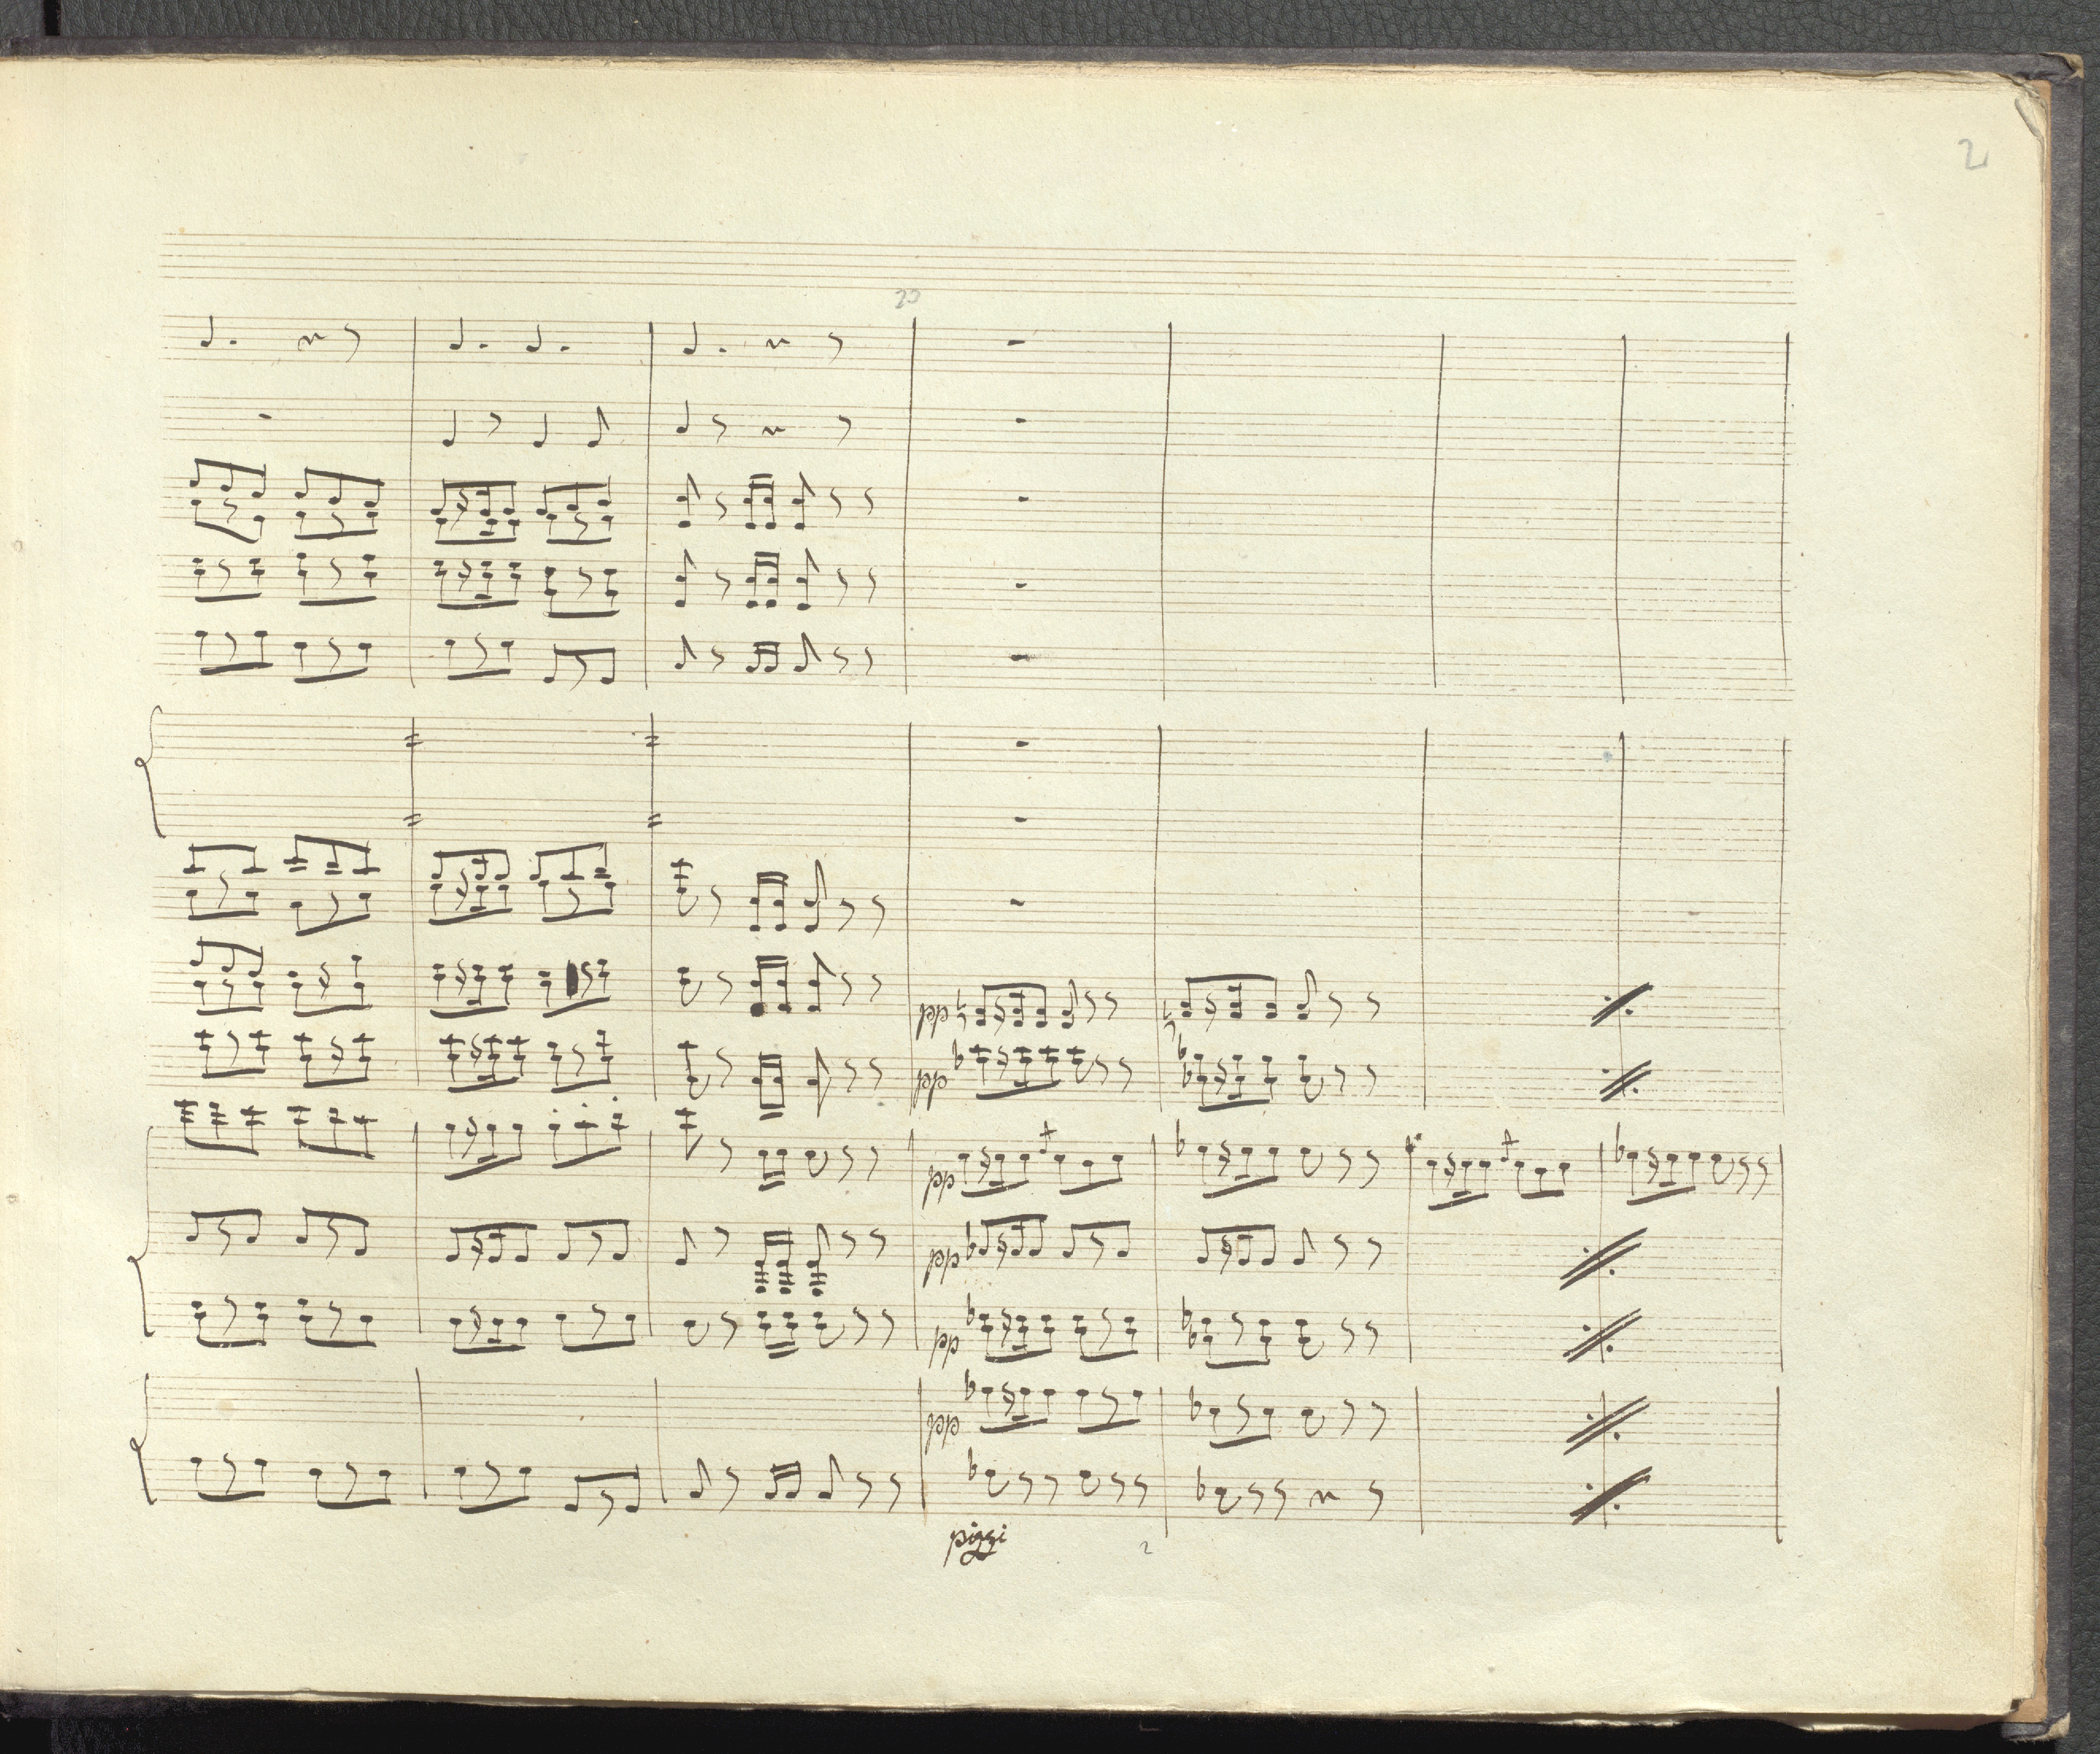 2
20
pp
pp
pp
pp
pp
pp
pizzi
2